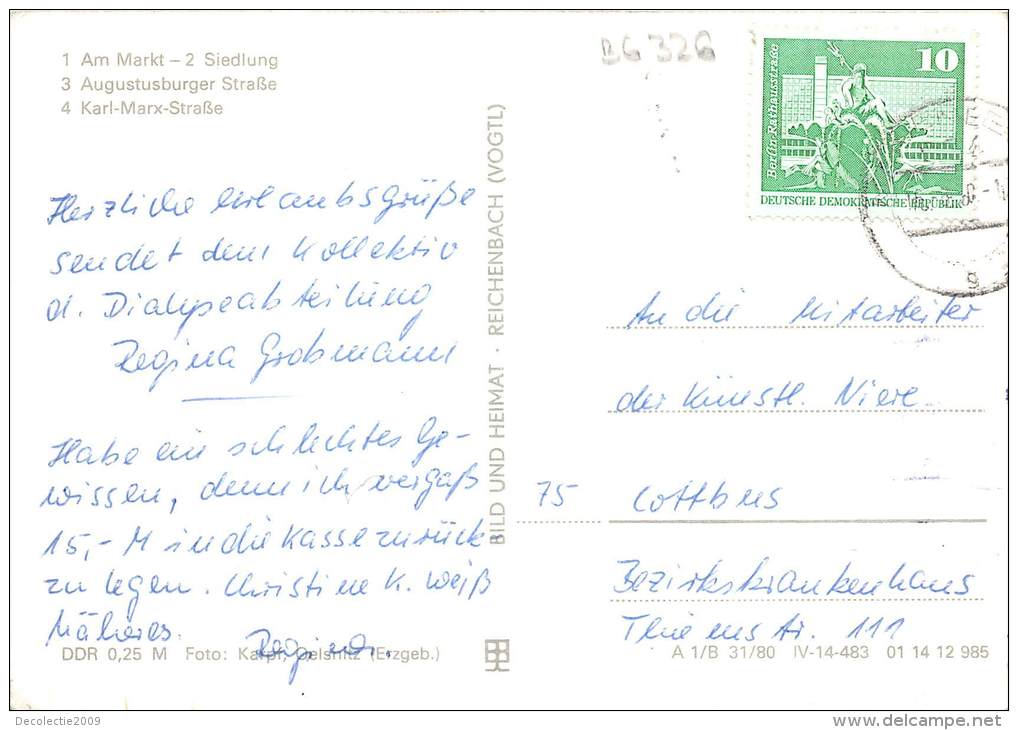 B6 326
1 Am Markt – 2 Siedlung
3 Augustusburger Straße
4 Karl-Marx-Straße
10
Berlin Rathausstraße
DEUTSCHE DEMOKRATISCHE REPUBLIK
Herzliche Urlaubsgrüße
sendet dem Kollektiv
d. Dialyseabteilung
Regina Großmann
Habe ein schlechtes Ge-
wissen, denn ich vergaß
15,- M in die Kasse zurück
zu legen. Christine K. weiß
Näheres.
Regina.
BILD UND HEIMAT · REICHENBACH (VOGTL)
An die Mitarbeiter
der Künstl. Niere
75 Cottbus
Bezirkskrankenhaus
111
DDR 0,25 M Foto: Karpf, Oelsnitz (Erzgeb.)
A 1/B 31/80 IV-14-483 01 14 12 985
Decolectie2009
www.delcampe.net